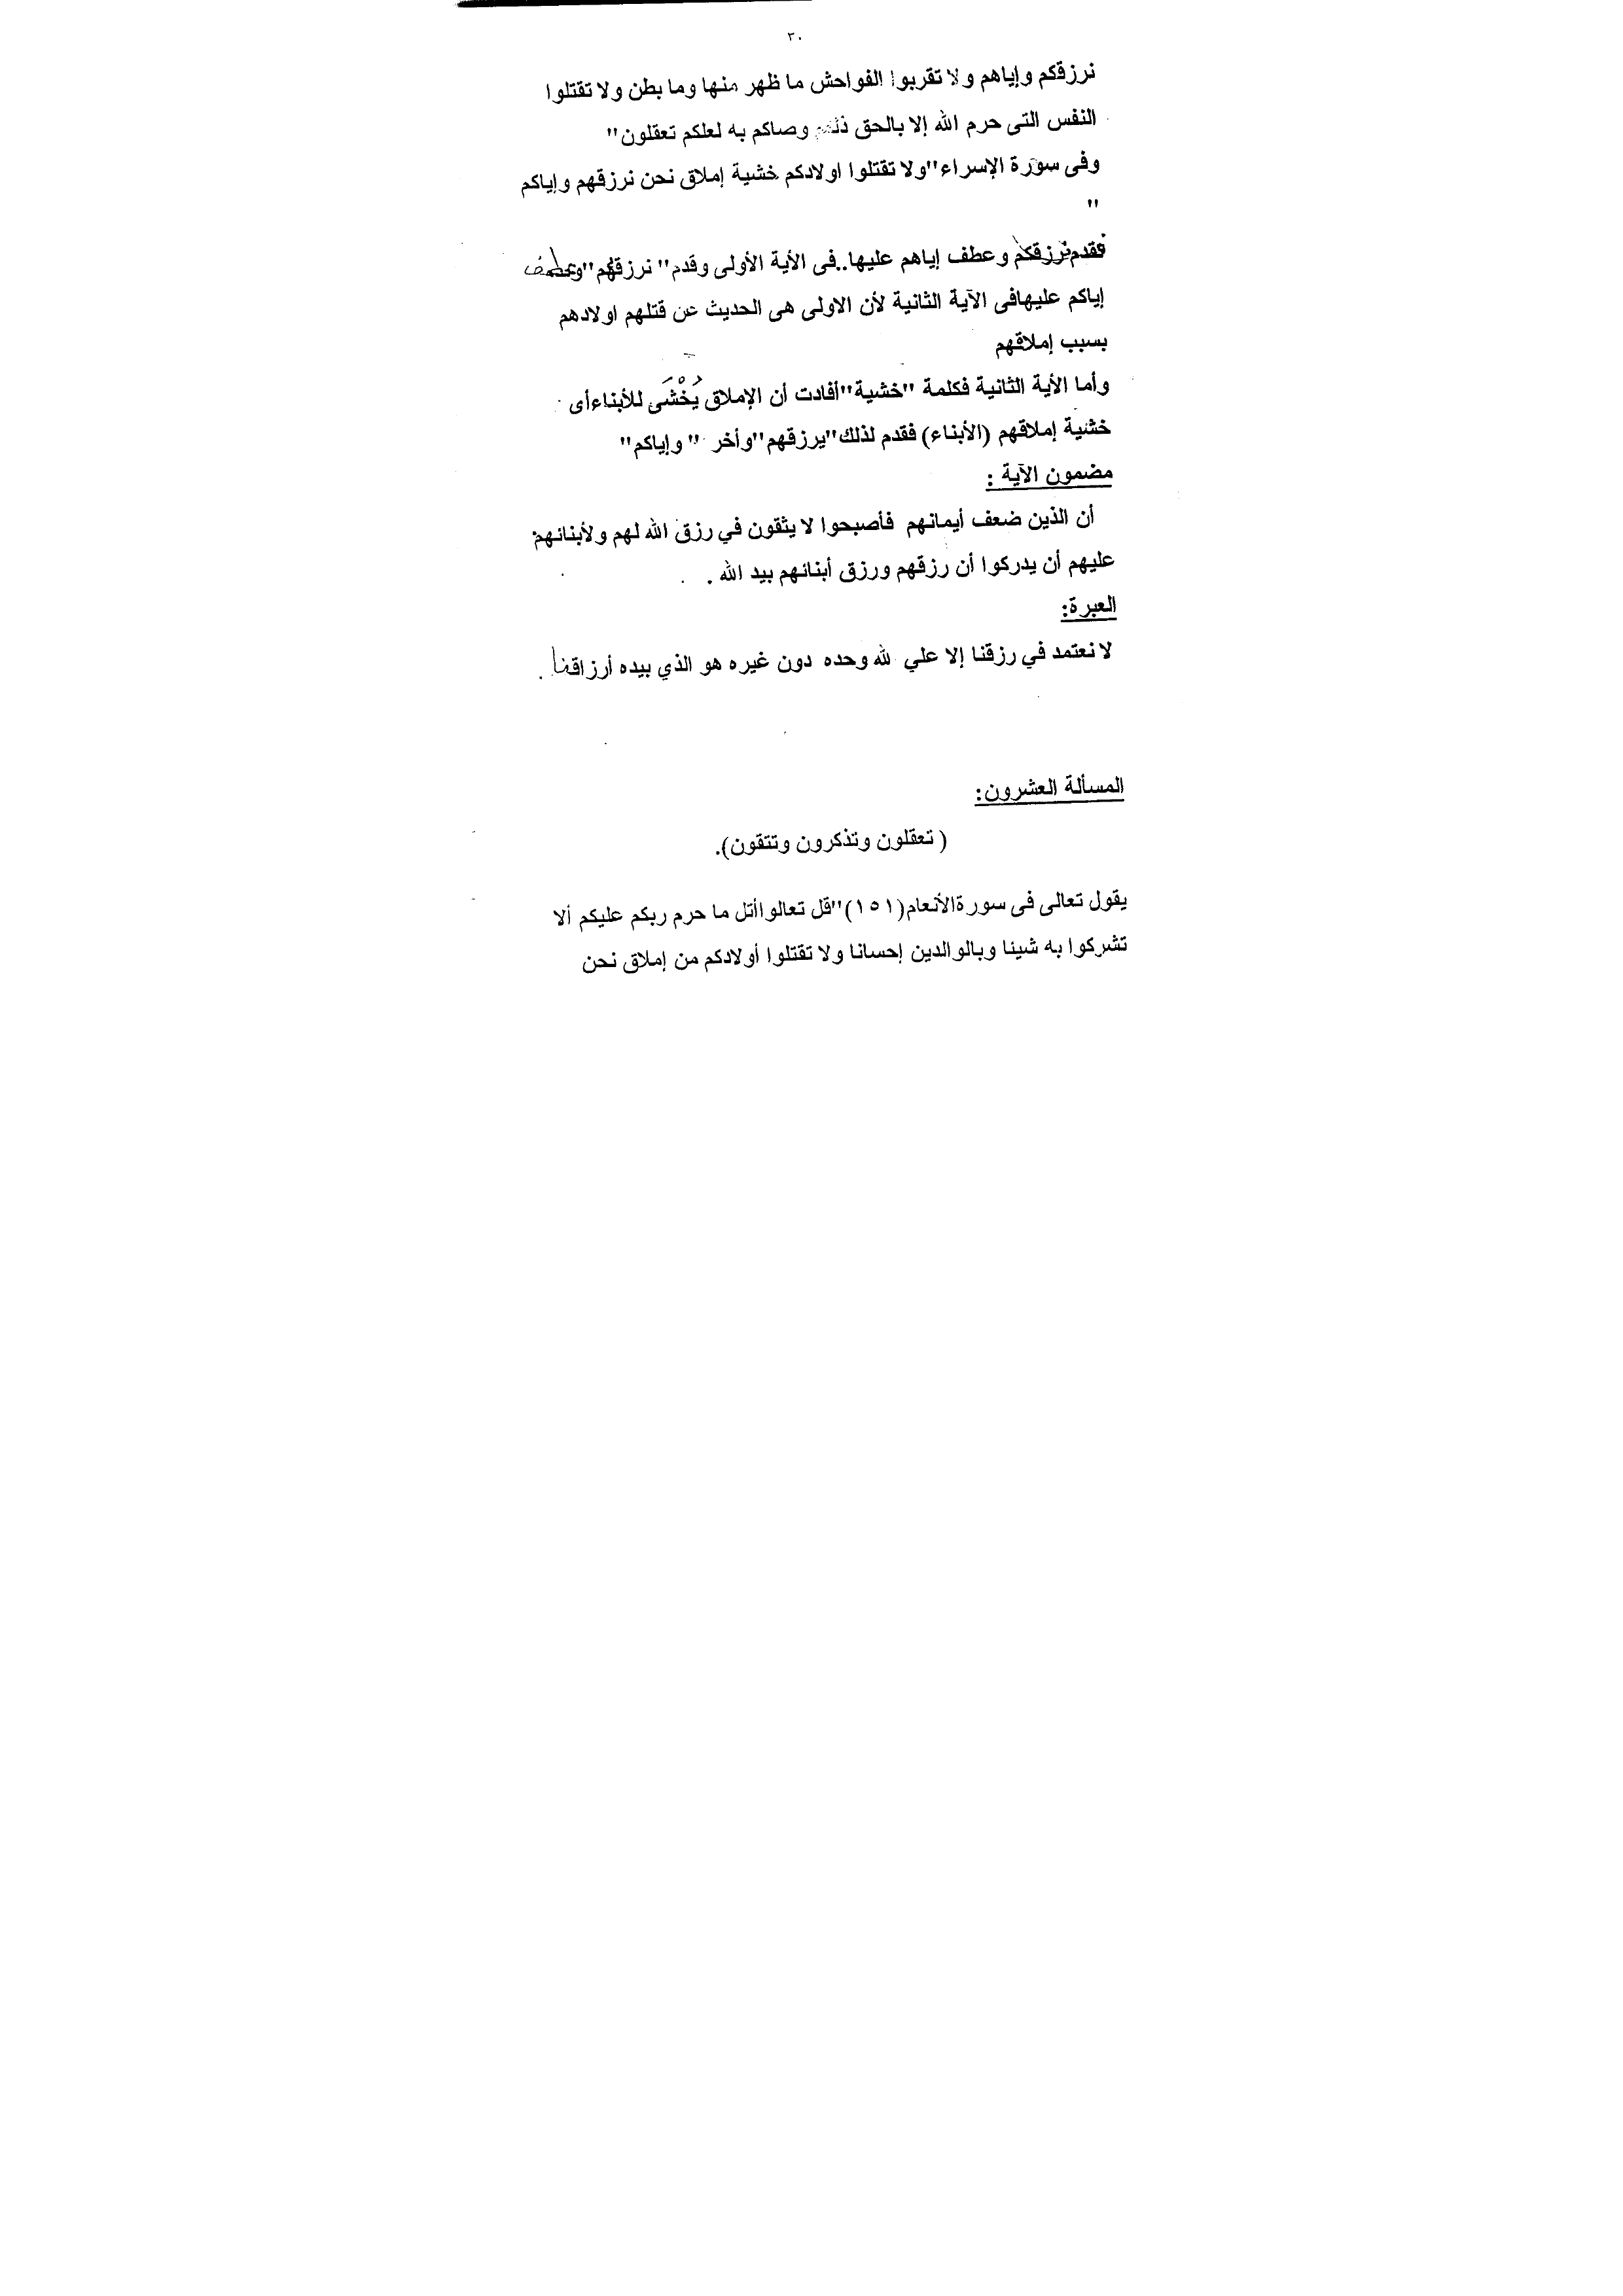 ٣٠
نرزقكم وإياهم ولا تقربوا الفواحش ما ظهر منها وما بطن ولا تقتلوا
النفس التى حرم الله إلا بالحق ذلكم وصاكم به لعلكم تعقلون"
وفى سورة الإسراء"ولا تقتلوا اولادكم خشية إملاق نحن نرزقهم وإياكم
"
فقدم نرزقكم وعطف إياهم عليها..فى الأية الأولى وقدم" نرزقهم"وعطف
إياكم عليهافى الآية الثانية لأن الاولى هى الحديث عن قتلهم اولادهم
بسبب إملاقهم
وأما الأية الثانية فكلمة "خشية"أفادت أن الإملاق يُخْشَى للأبناءأى
خشية إملاقهم (الأبناء) فقدم لذلك"يرزقهم"وأخر " وإياكم"
مضمون الآية :
أن الذين ضعف أيمانهم فأصبحوا لا يثقون في رزق الله لهم ولأبنائهم
عليهم أن يدركوا أن رزقهم ورزق أبنائهم بيد الله .
العبرة:
لا نعتمد في رزقنا إلا علي لله وحده دون غيره هو الذي بيده أرزاقنا .
المسألة العشرون:
( تعقلون وتذكرون وتتقون).
يقول تعالى فى سورةالأنعام(١٥١)"قل تعالواأتل ما حرم ربكم عليكم ألا
تشركوا به شيئا وبالوالدين إحسانا ولا تقتلوا أولادكم من إملاق نحن